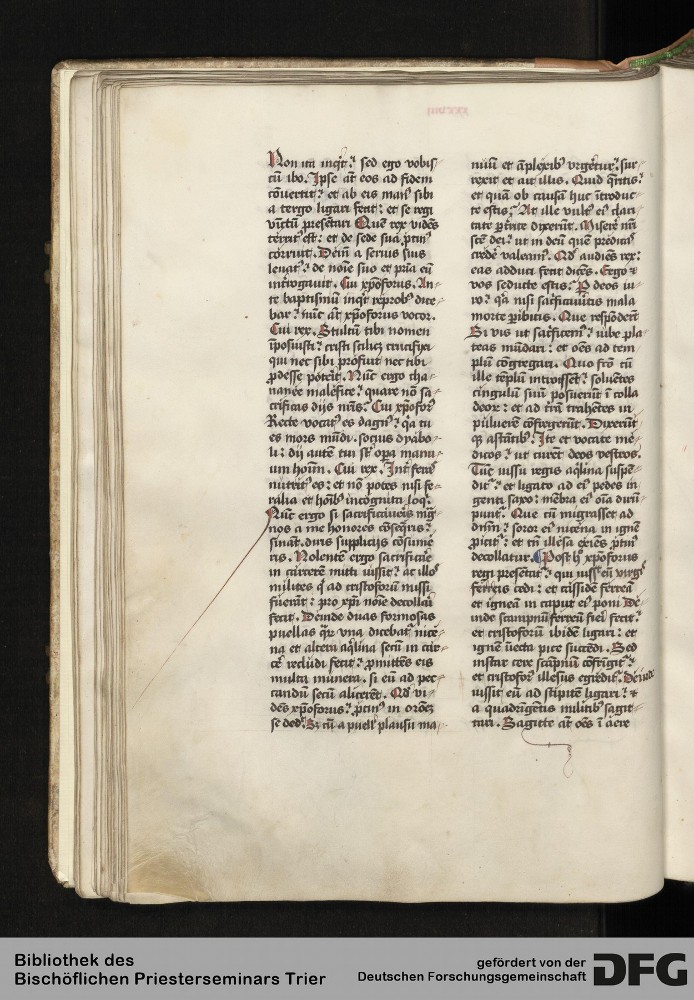 Non ita inq̄t? sed ego vobis
cū ibo. Ipse āt eos ad fidem
cōuertit? et ab eis man9 sibi
a tergo ligari fecit? et se regi
vīctū p̄sētari Quē rex vidēs
territ9 est: et de sede sua p̄tin9
corruit. Deīn a seruis suis
leuat9? de noīe suo et pr̄ia eū
int̓rogauit. Cui xp̄oforus. An-
te baptismū inq̄t reprob9 dice-
bar? nūc āt xp̄oforus vocor.
Cui rex. Stultū tibi nomen
īposuisti? cristi scilicȝ crucifixi
qui nec sibi profuit nec tibi
ꝓdesse poterit. Nūc ergo cha-
nanee malefice? quare nō sa-
crificas dijs nr̄is? Cui xp̄ofor9
Recte vocat9 es dagn9? q̄a tu
es mors mūdi. socius dyabo-
li? dij autē tui st̄ opa manu-
um hoīm. Cui rex. Int̓ feras
nutrit9 es: et nō potes nisi fe-
ralia et hoībȝ incognita loqi
Nūc ergo si sacrificaueris mag-
nos a me honores cōseq̄ris?
sināt. duris supplicijs cōsume-
ris. Nolentē ergo sacrificare
in carcerē mitti iussit? ac illos
milites q̄ ad cristoforū missi
fuerāt? pro xp̄i noīe decollari
fecit. Deinde duas formosas
puellas q̄r vna dicebat̓ nice-
na et altera aq̄lina secū in car-
cē recludi fecit? ꝓmittēs eis
multa munera. si eū ad pec-
candū secū alicerēt. Qd̄ vi-
dēs xp̄oforus? p̄tin9 in orōeȝ
se dedit Sȝ cū a puell' plausu ma-
nuū et āplexibȝ vrgēretur? sur-
rexit et ait illis. Quid q̄ritis?
et quā ob causā huc ītroduc-
te estis? At ille vult9 ei9 clari-
tate p̄t̓rite dixerūt. Miserē nr̄i
scē dei? ut in deū quē predicas
credē valeam9. Qd̄ audiēs rex?
eas adduci fecit dicēs. Ergo ⁊
vos seducte estis? P deos iu-
ro? q̄a nisi sacrificaueritis mala
morte p̄ibitis. Que respōderūt
Si vis ut sacrificem9? iube pla-
teas mūdari: et oēs ad tem-
plū cōgregari. Quo fc̄o cū
ille tēplū intrassēt? soluētes
cingulū suū posuerūt ī colla
deoȝ: et ad tr̄ā trahētes in
puluerē cōfregerūt. Dixerūt
qȝ astātibȝ. Ite et vocate me-
dicos? ut curēt deos vestros.
Tūc iussu regis aq̄lina suspē-
dit̓? et ligato ad ei9 pedes in-
genti saxo? mēbra ei9 oīa dirū-
punt̓. Que cū migrasset ad
dn̄m? soror ei9 nicena in ignē
ꝓicit̓? et tn̄ illesa exiēs p̄tin9
decollatur. ¶ Post hꝰ xp̄oforus
regi presētat̓? qui iussit eū virgis
ferreis cedi: et cassidē ferreā
et igneā in caput ei9 poni De-
inde scampnū ferreū fieri fecit?
et cristoforū ibidē ligari: et
ignē iuecta pice succēdi. Sed
instar cere scāpnū cōfrīgit̓?
et cristofor9 illesus egredit̓. Deinde
iussit eū ad stipitē ligari? ⁊
a quadrīgētis militibȝ sagit-
tari. Sagitte āt oēs ī aere
Bibliothek des
Bischöflichen Priesterseminars Trier
gefördert von der
Deutschen Forschungsgemeinschaft
DFG